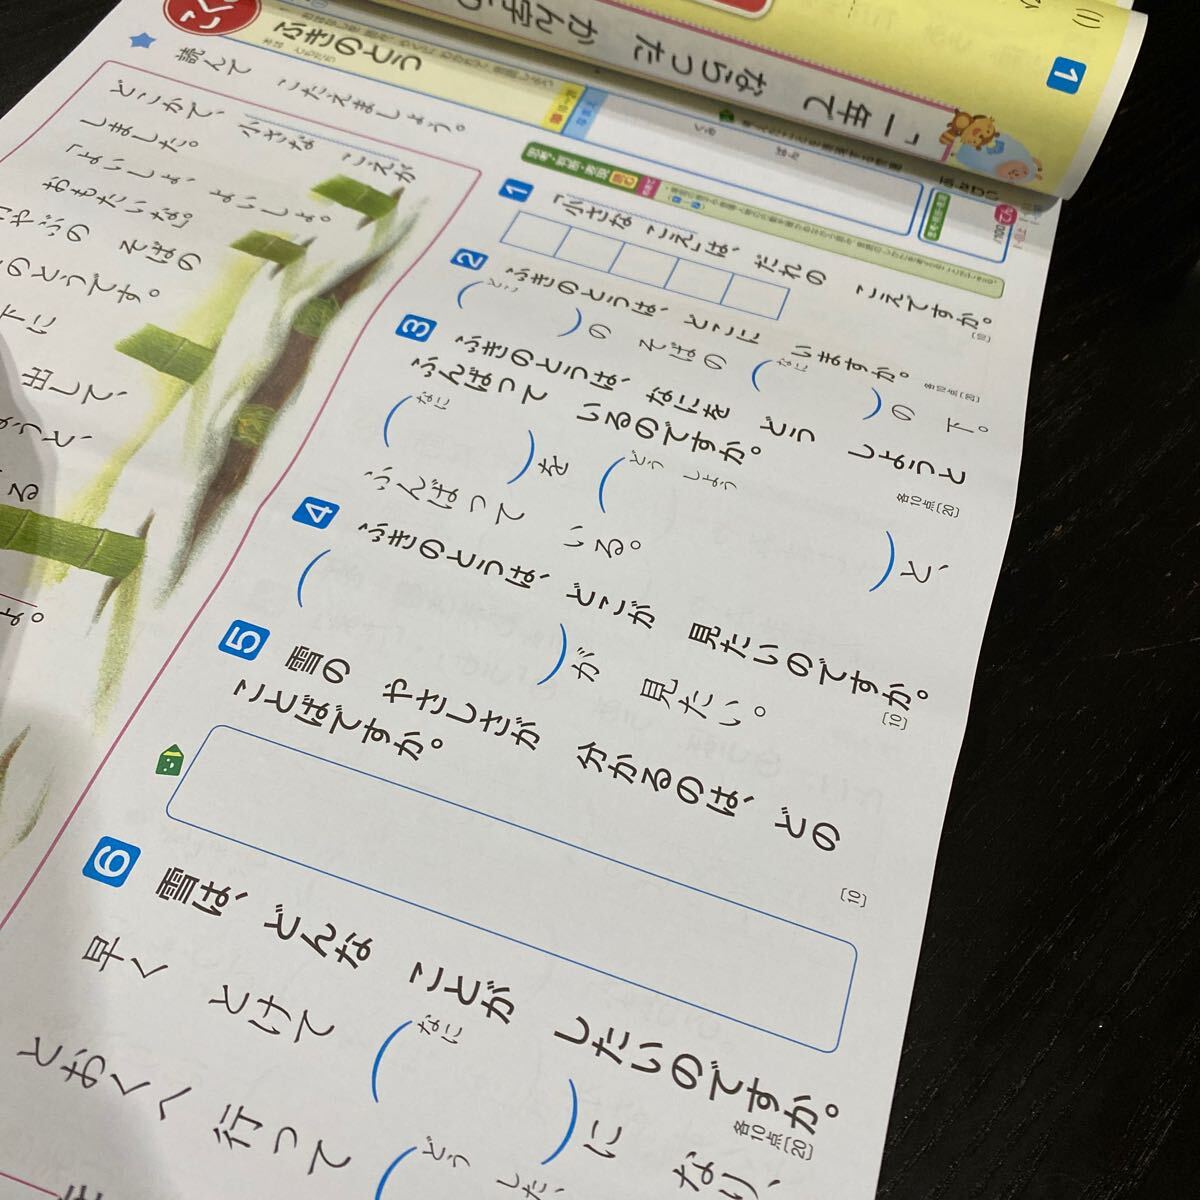 「一年で ならった かん字
1
こく
ふきのとう
読んで こたえましょう。
どこかで、小さな こえが
しました。
「よいしょ、よいしょ。
おもたいな。」
やぶの そばの
のとうです。
下に
出して、
うと、
る
よ。
思考・判断・表現 読む
/100てん
1 「小さな こえ」は、だれの こえですか。
〔10〕
2 ふきのとうは、どこに いますか。
各10点〔20〕
(どこ )の そばの (なに )の 下。
3 ふきのとうは、なにを どう しようと
ふんばって いるのですか。
各10点〔20〕
(なに )を (どう しよう )と、
ふんばって いる。
4 ふきのとうは、どこが 見たいのですか。
〔10〕
( )が 見たい。
5 雪の やさしさが 分かるのは、どの
ことばですか。
〔10〕
6 雪は、どんな ことが したいのですか。
各10点〔20〕
早く とけて (なに )に なり、
とおくへ 行って (どう した